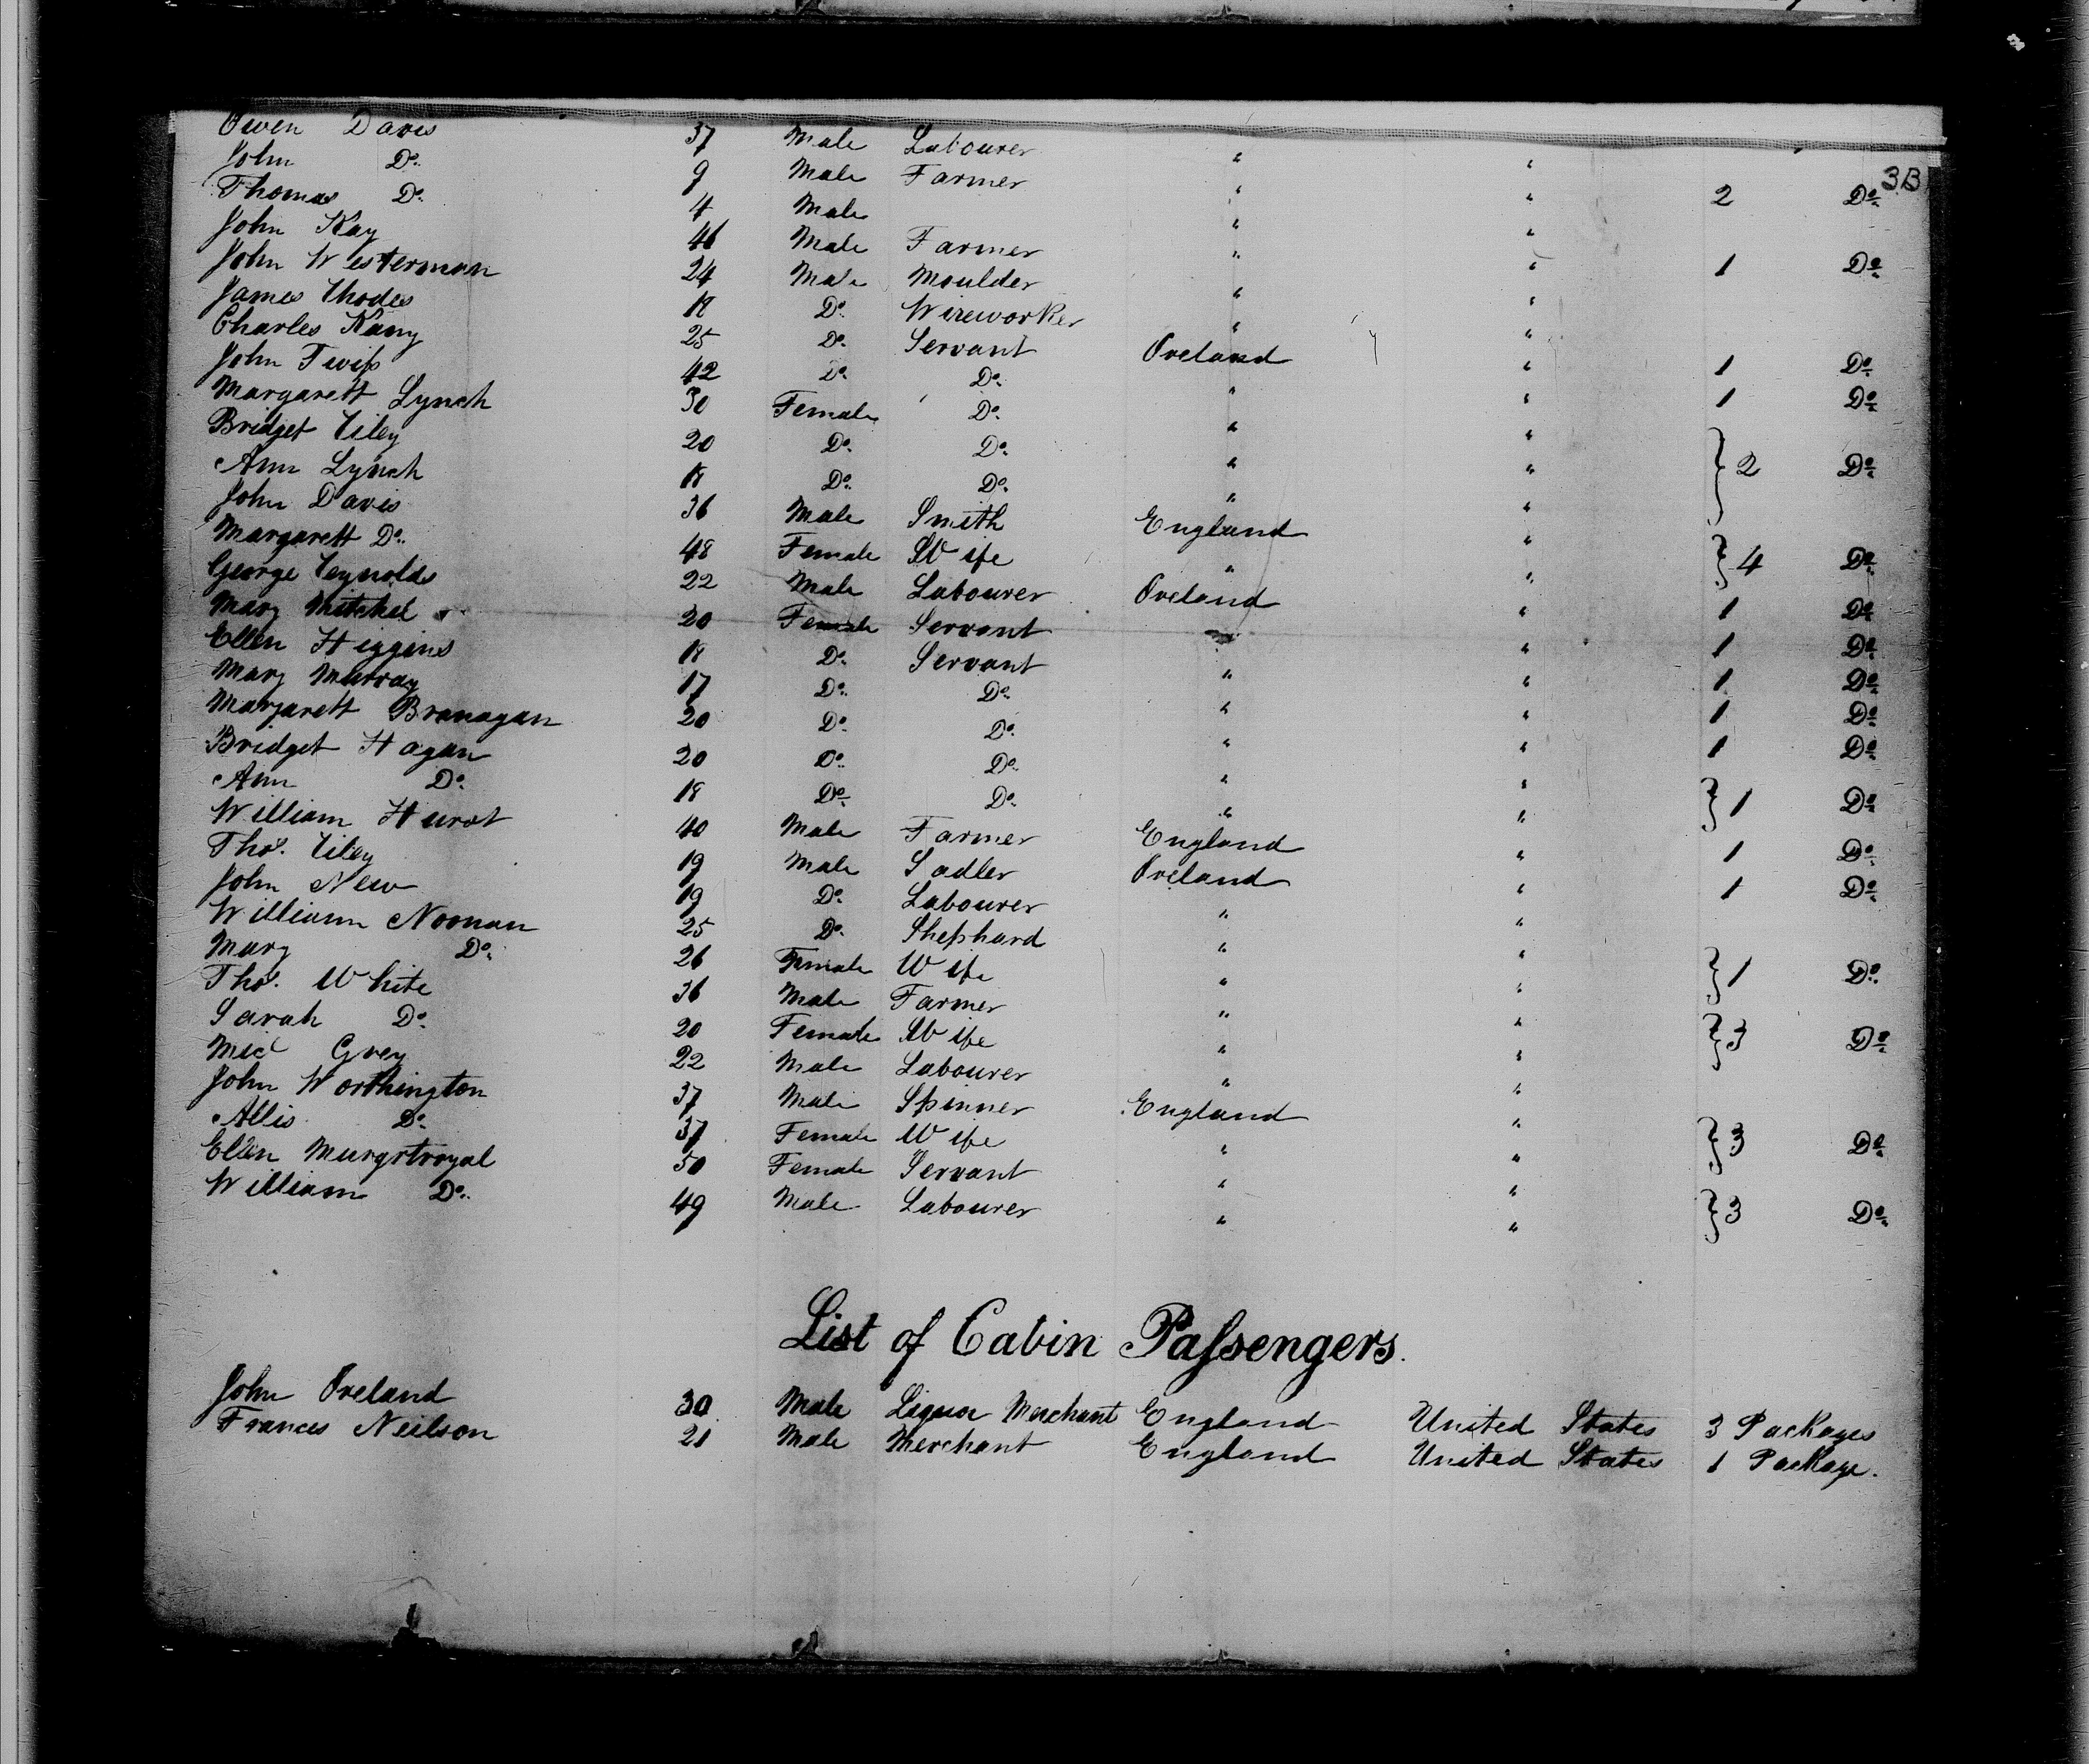 3B
Owen Davis 37 Male Labourer " "
John Do. 9 Male Farmer " " 2 Do.
Thomas Do. 4 Male " "
John Kay 46 Male Farmer " " 1 Do.
John Westerman 24 Male Moulder " "
James Rhodes 18 Do. Wireworker " "
Charles 25 Do. Servant Ireland " 1 Do.
John Twiss 42 Do. Do. " " 1 Do.
Margarett Lynch 30 Female Do. " "
Bridget Riley 20 Do. Do. " " } 2 Do.
Ann Lynch 18 Do. Do. " "
John Davis 36 Male Smith England "
Margarett Do. 48 Female Wife " " } 4 Do.
George Reynolds 22 Male Labourer Ireland " 1 Do.
Mary Mitchel 20 Female Servant " " 1 Do.
Ellen Higgins 18 Do. Servant " " 1 Do.
Mary Murray 17 Do. Do. " " 1 Do.
Margarett Branagan 20 Do. Do. " " 1 Do.
Bridget Hagan 20 Do. Do. " "
Ann Do. 18 Do. Do. " " } 1 Do.
William Hurst 40 Male Farmer England " 1 Do.
Thos. Riley 19 Male Sadler Ireland " 1 Do.
John New 19 Do. Labourer " "
William Noonan 25 Do. Shephard " "
Mary Do. 26 Female Wife " " } 1 Do.
Thos. White 36 Male Farmer " "
Sarah Do. 20 Female Wife " " } 3 Do.
Micl Grey 22 Male Labourer " "
John Worthington 37 Male Spinner England "
Allis Do. 37 Female Wife " " } 3 Do.
Ellen Murgstroyal 50 Female Servant " "
William Do. 49 Male Labourer " " } 3 Do.
List of Cabin Passengers.
John Ireland 30 Male Liquor Merchant England United States 3 Packages
Frances Neilson 21 Male Merchant England United States 1 Package.